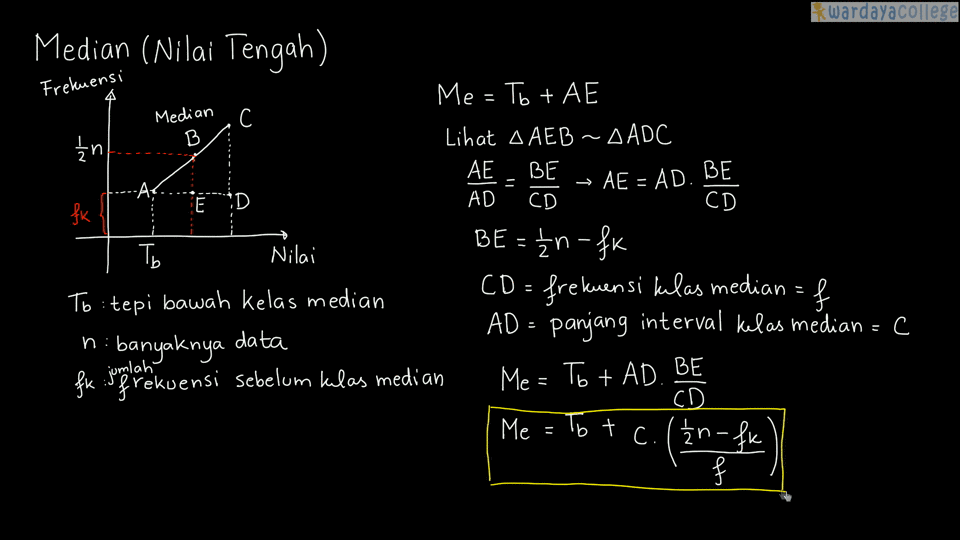 wardayacollege
Median (Nilai Tengah)
Frekuensi
Median
C
B
½n
A
E
D
fk
Tb
Nilai
Tb : tepi bawah kelas median
n : banyaknya data
fk : jumlah frekuensi sebelum kelas median
Me = Tb + AE
Lihat △AEB ~ △ADC
AE/AD = BE/CD → AE = AD . BE/CD
BE = ½n - fk
CD = frekuensi kelas median = f
AD = panjang interval kelas median = C
Me = Tb + AD . BE/CD
Me = Tb + C . ((½n - fk)/f)